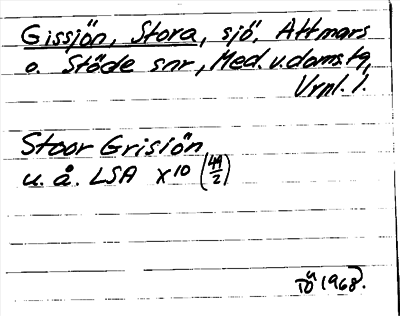 Gissjön, Stora, sjö. Attmars
o. Stöde snr, Med. v. doms. tg,
Vrnl. l.
Stoor Grisiön
u. å. LSA X10 (44/2)
1968.